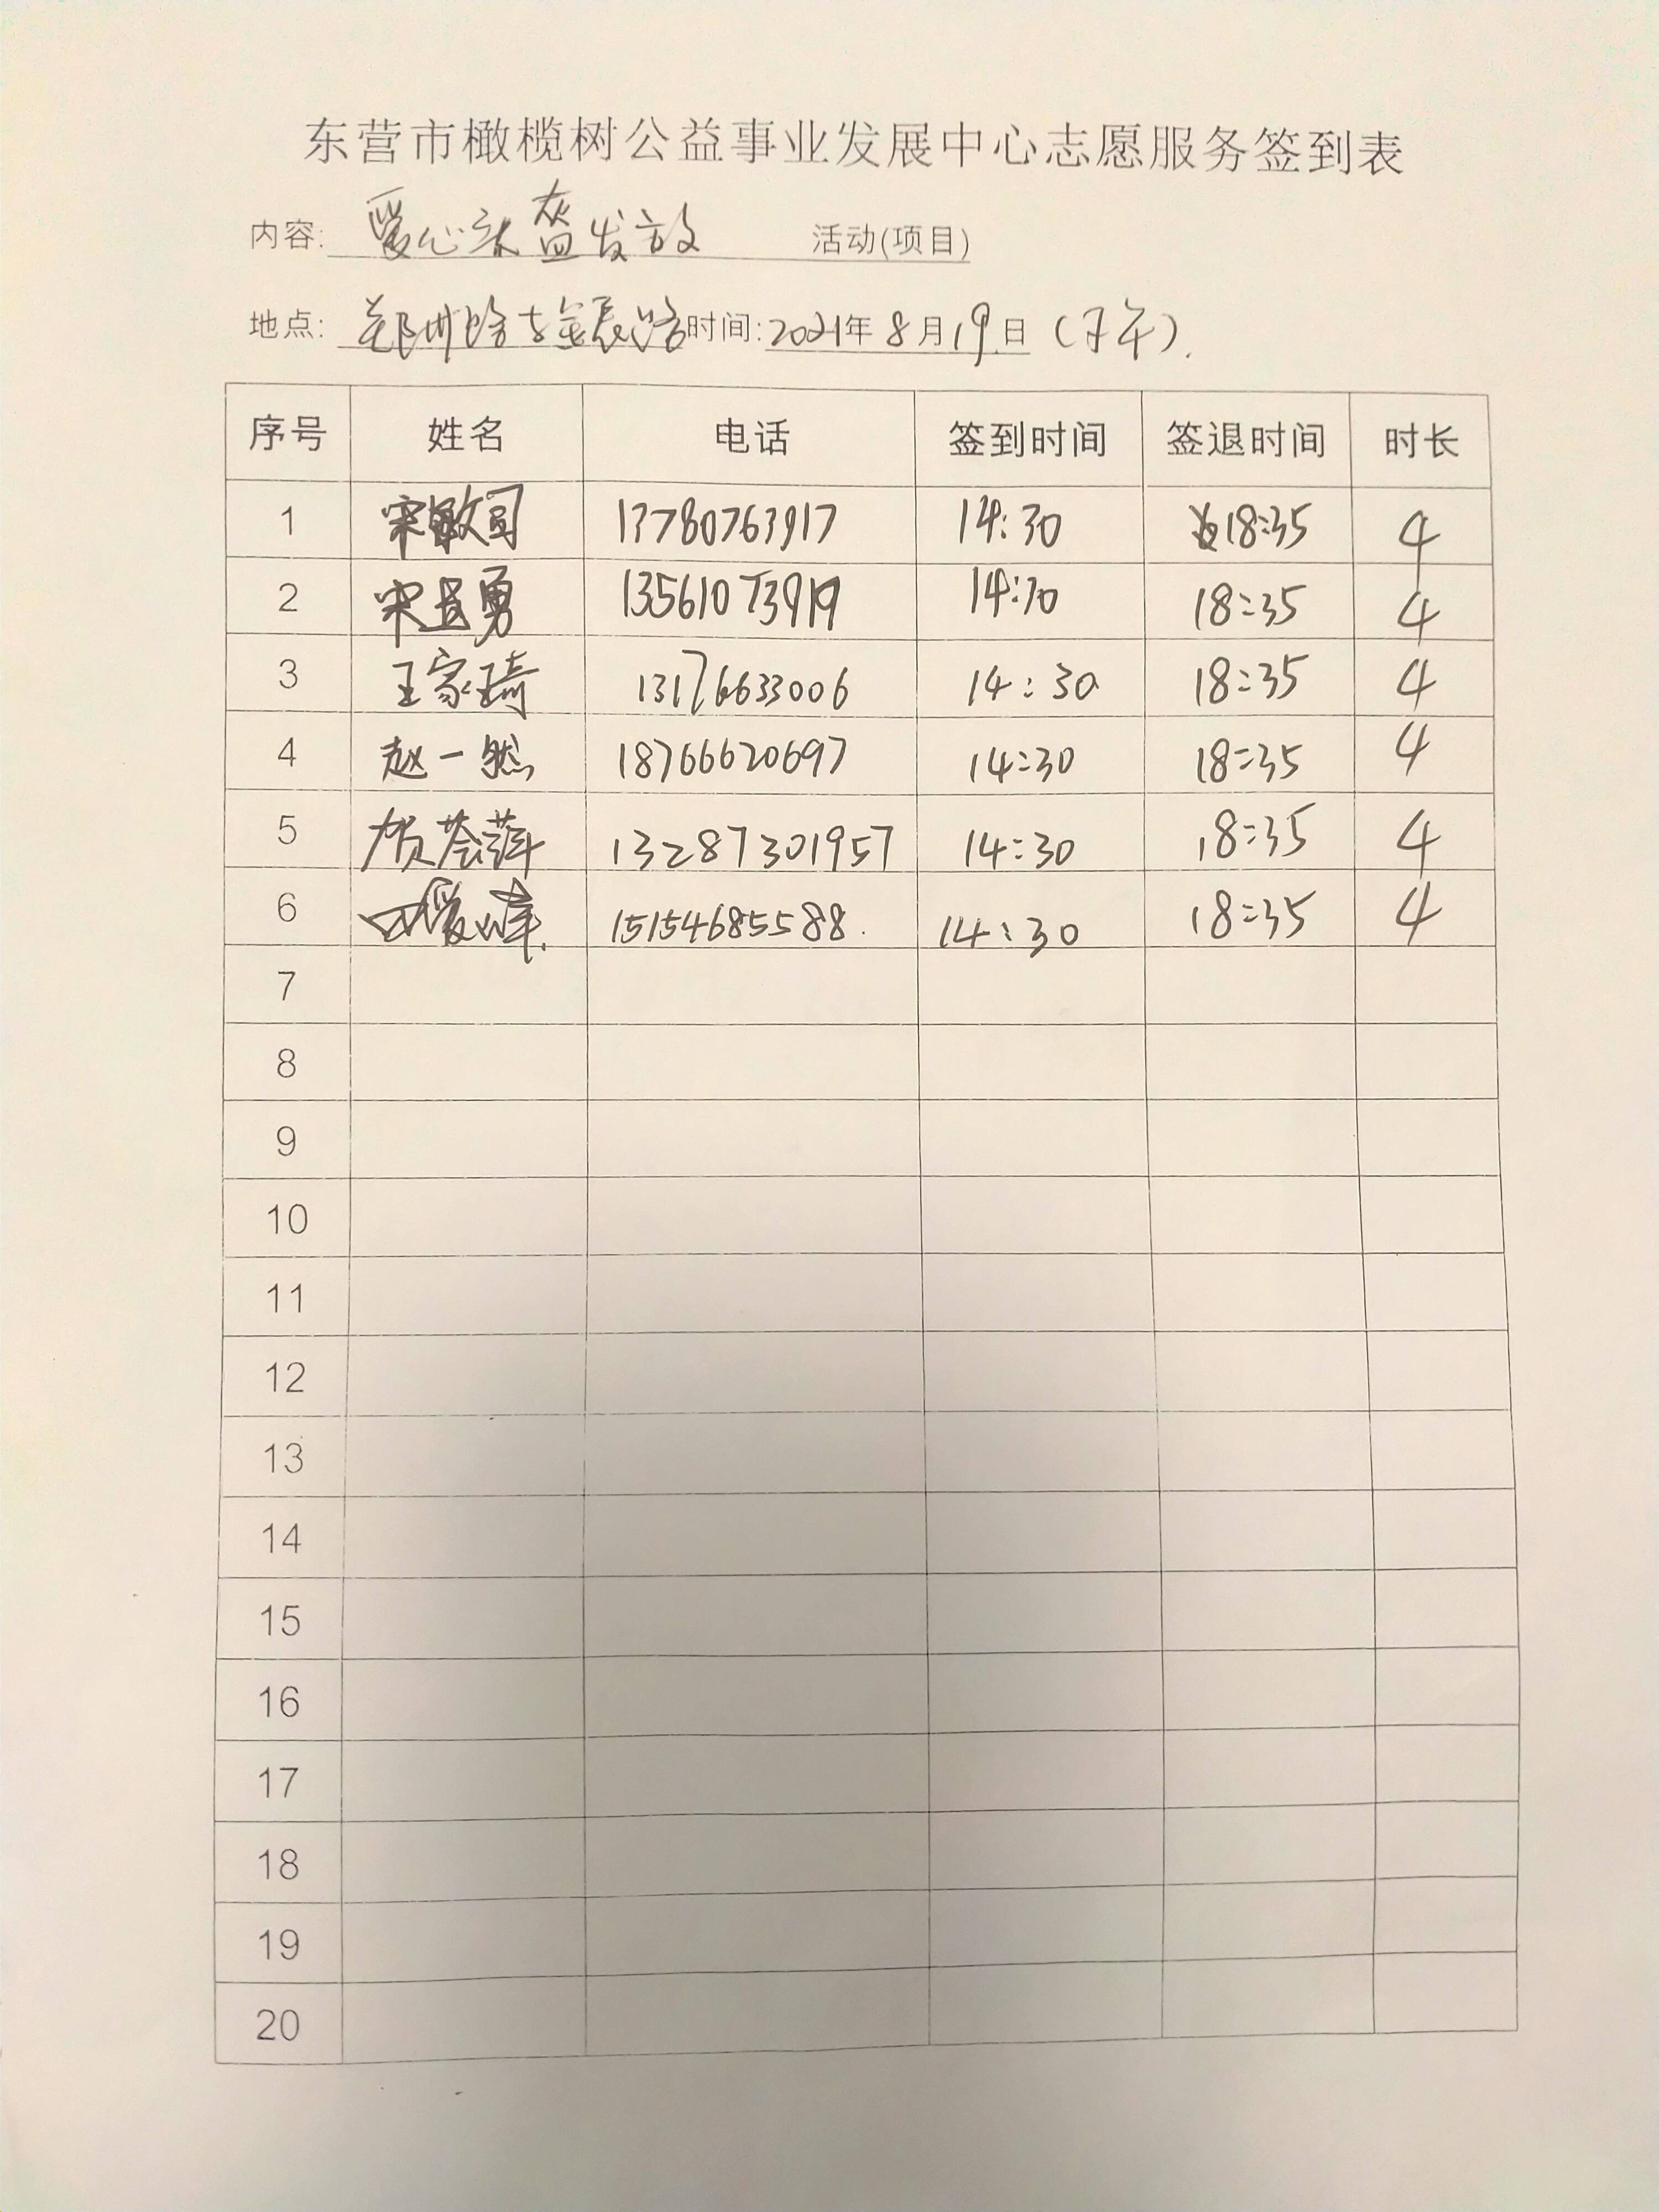 东营市橄榄树公益事业发展中心志愿服务签到表
内容: 爱心头盔发放 活动(项目)
地点: 郑州路与金辰路 时间: 2021年8月19日 (下午).
序号 姓名 电话 签到时间 签退时间 时长
1 宋敏司 13780763917 14:30 18:35 4
2 宋 勇 13561073919 14:30 18:35 4
3 王家琦 13176633006 14:30 18:35 4
4 赵一然 18766620697 14:30 18:35 4
5 贺荟萍 13287301957 14:30 18:35 4
6 15154685588. 14:30 18:35 4
7
8
9
10
11
12
13
14
15
16
17
18
19
20